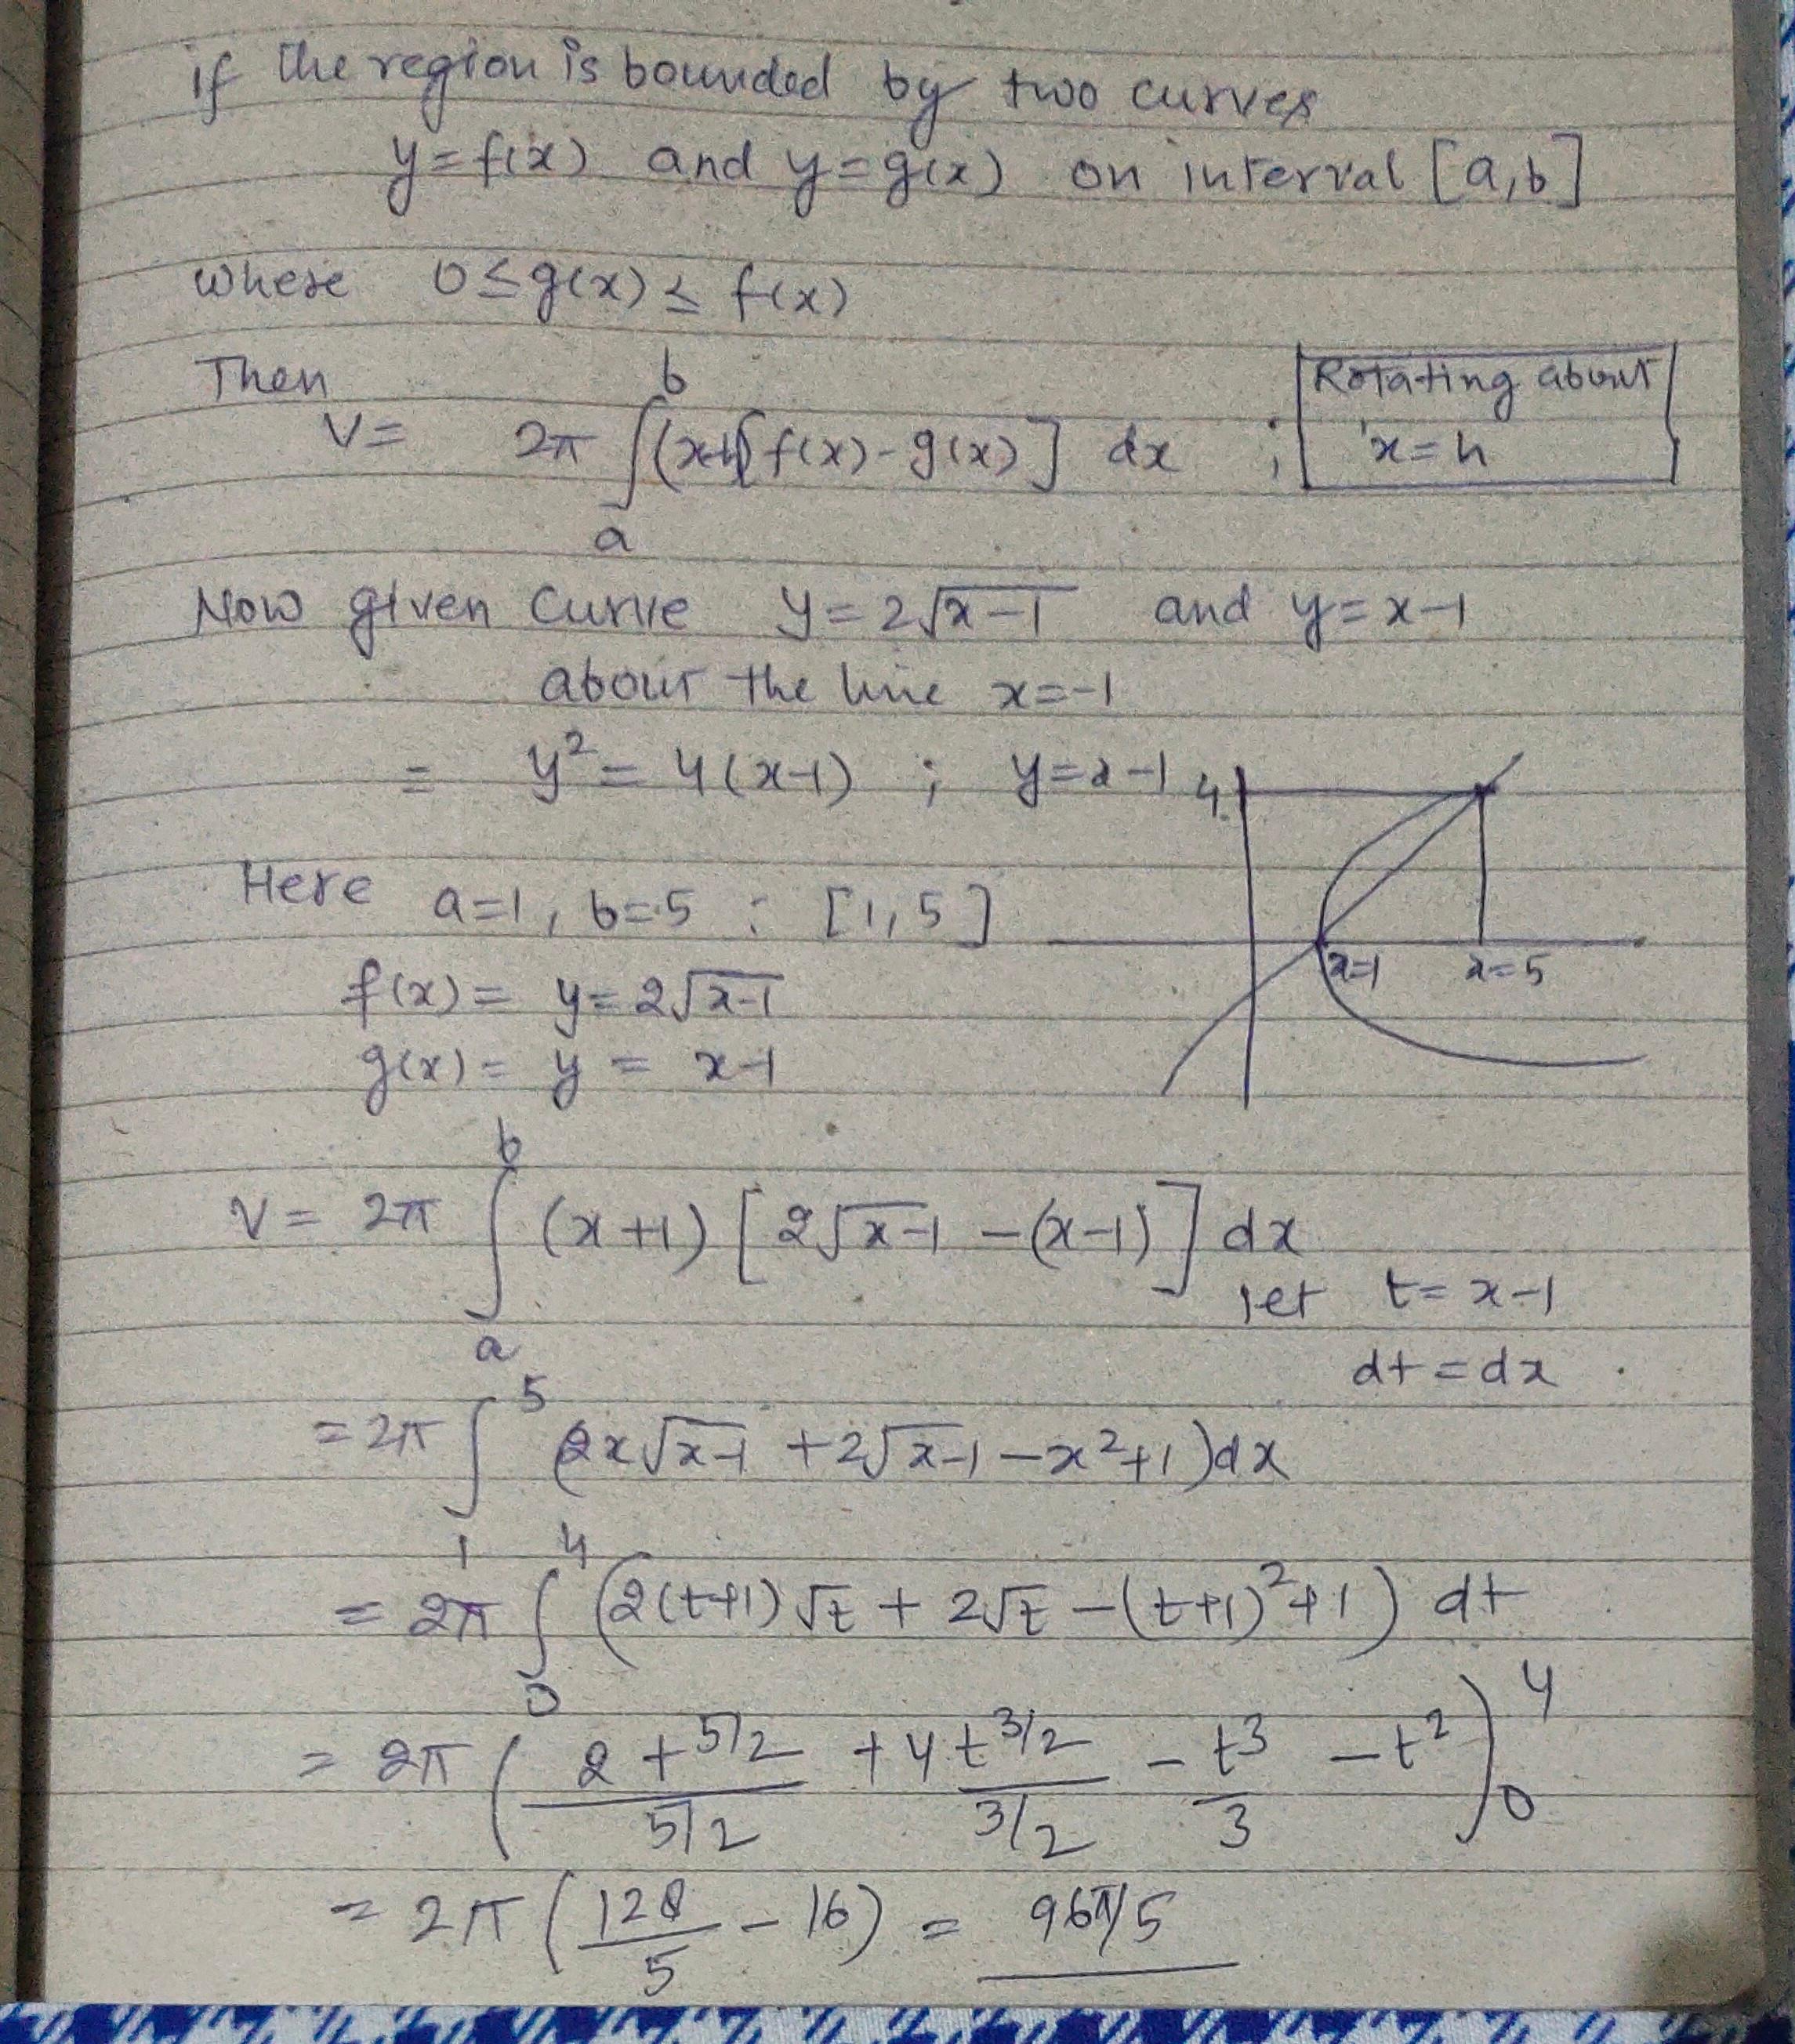 if the region is bounded by two curves
y=f(x) and y=g(x) on interval [a,b]
where 0≤g(x)≤ f(x)
Then
V= 2π ∫_a^b (x+h)[f(x)-g(x)] dx ; Rotating about x=h
Now given Curve y=2√(x-1) and y=x-1
about the line x=-1
= y²=4(x-1) ; y=x-1
4
Here a=1, b=5 : [1,5]
x=1 x=5
f(x)= y=2√(x-1)
g(x)= y = x-1
V= 2π ∫_a^b (x+1) [2√(x-1) -(x-1)] dx
let t=x-1
dt=dx
=2π ∫_1^5 (2x√(x-1) +2√(x-1) -x²+1)dx
= 2π ∫_0^4 (2(t+1)√t + 2√t -(t+1)²+1) dt
= 2π ( 2t^(5/2)/(5/2) + 4t^(3/2)/(3/2) - t³/3 - t² )_0^4
= 2π (128/5 - 16) = 96π/5